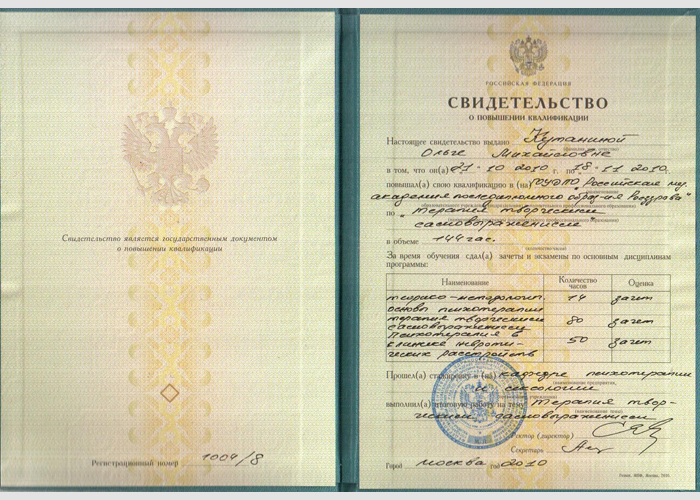 Свидетельство является государственным документом
о повышении квалификации
Регистрационный номер 1004/8
РОССИЙСКАЯ ФЕДЕРАЦИЯ
СВИДЕТЕЛЬСТВО
О ПОВЫШЕНИИ КВАЛИФИКАЦИИ
Настоящее свидетельство выдано Кутаниной
Ольге Михайловне
в том, что он(а) 21-10 2010 г. по 18-11 2010.
повышал(а) свою квалификацию в (на) ГОУДПО „Российская
академия последипломного образ-ия Росздрава"
по „терапия творческим
самовыражением"
в объеме 144 час.
За время обучения сдал(а) зачеты и экзамены по основным дисциплинам
программы:
Наименование Количество часов Оценка
теорико-методологич. 14 зачет
основы психотерапии
терапия творческим 80 зачет
самовыражением
Психотерапия в 50 зачет
клинике невроти-
ческих расстройств
Прошел(а) стажировку в (на) кафедре психотерапии
и сексологии
выполнил(а) итоговую работу на тему Терапия твор-
ческим самовыражением
Ректор (директор)
Секретарь
Город Москва год 2010